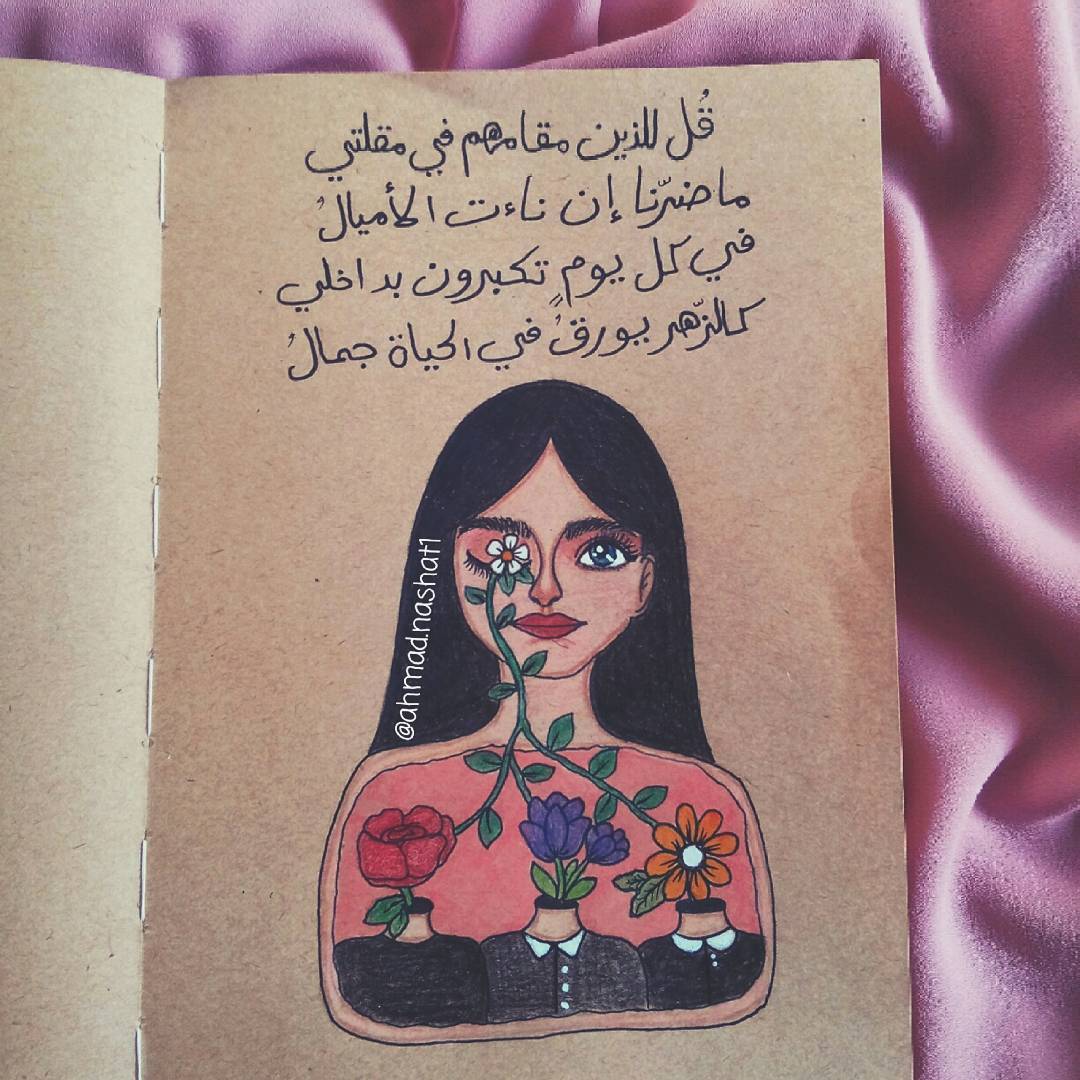 قُل للذين مقامهم في مقلتي
ما ضرّنا إن ناءت الأميالُ
في كل يومٍ تكبرون بداخلي
كالزّهر يورقُ في الحياة جمالُ
@ahmad.nashat1